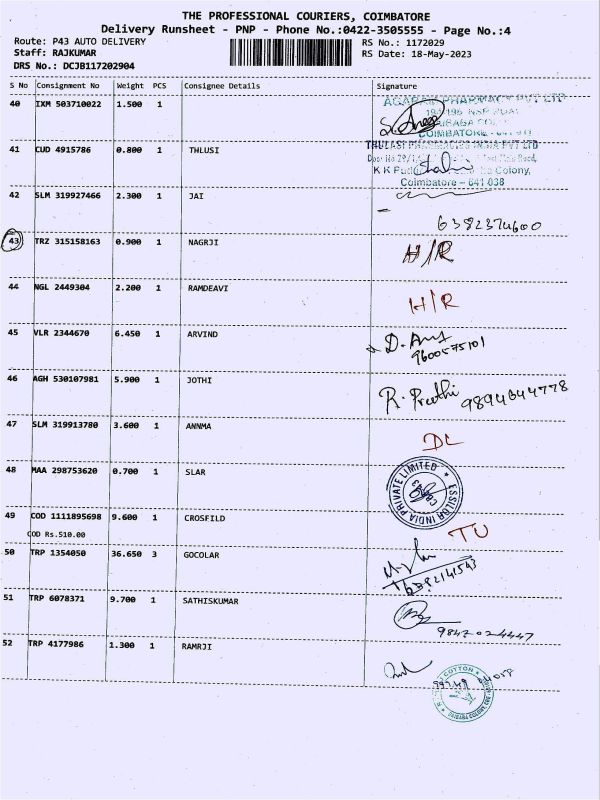 THE PROFESSIONAL COURIERS, COIMBATORE
Delivery Runsheet - PNP - Phone No.:0422-3505555 - Page No.:4
Route: P43 AUTO DELIVERY RS No.: 1172029
Staff: RAJKUMAR RS Date: 18-May-2023
DRS No.: DCJB117202904
S No Consignment No Weight PCS Consignee Details Signature
40 IXM 503710022 1.500 1
AGARAM PHARMACY PVT LTD
COIMBATORE
41 CUD 4915786 0.800 1 THLUSI
THULASI PHARMACIES INDIA PVT LTD
K K Pudur Colony,
Coimbatore - 641 038
42 SLM 319927466 2.300 1 JAI
6382374600
43 TRZ 315158163 0.900 1 NAGRJI H/R
44 NGL 2449304 2.200 1 RAMDEAVI H/R
45 VLR 2344670 6.450 1 ARVIND
9600575101
46 AGH 530107981 5.900 1 JOTHI R. Preethi 9894644778
47 SLM 319913780 3.600 1 ANNMA DL
48 MAA 298753620 0.700 1 SLAR ESSILOR INDIA PRIVATE LIMITED
49 COD 1111895698 9.600 1 CROSFILD
COD Rs.510.00
50 TRP 1354050 36.650 3 GOCOLAR
51 TRP 6078371 9.700 1 SATHISKUMAR
9842024447
52 TRP 4177986 1.300 1 RAMRJI
COTTON